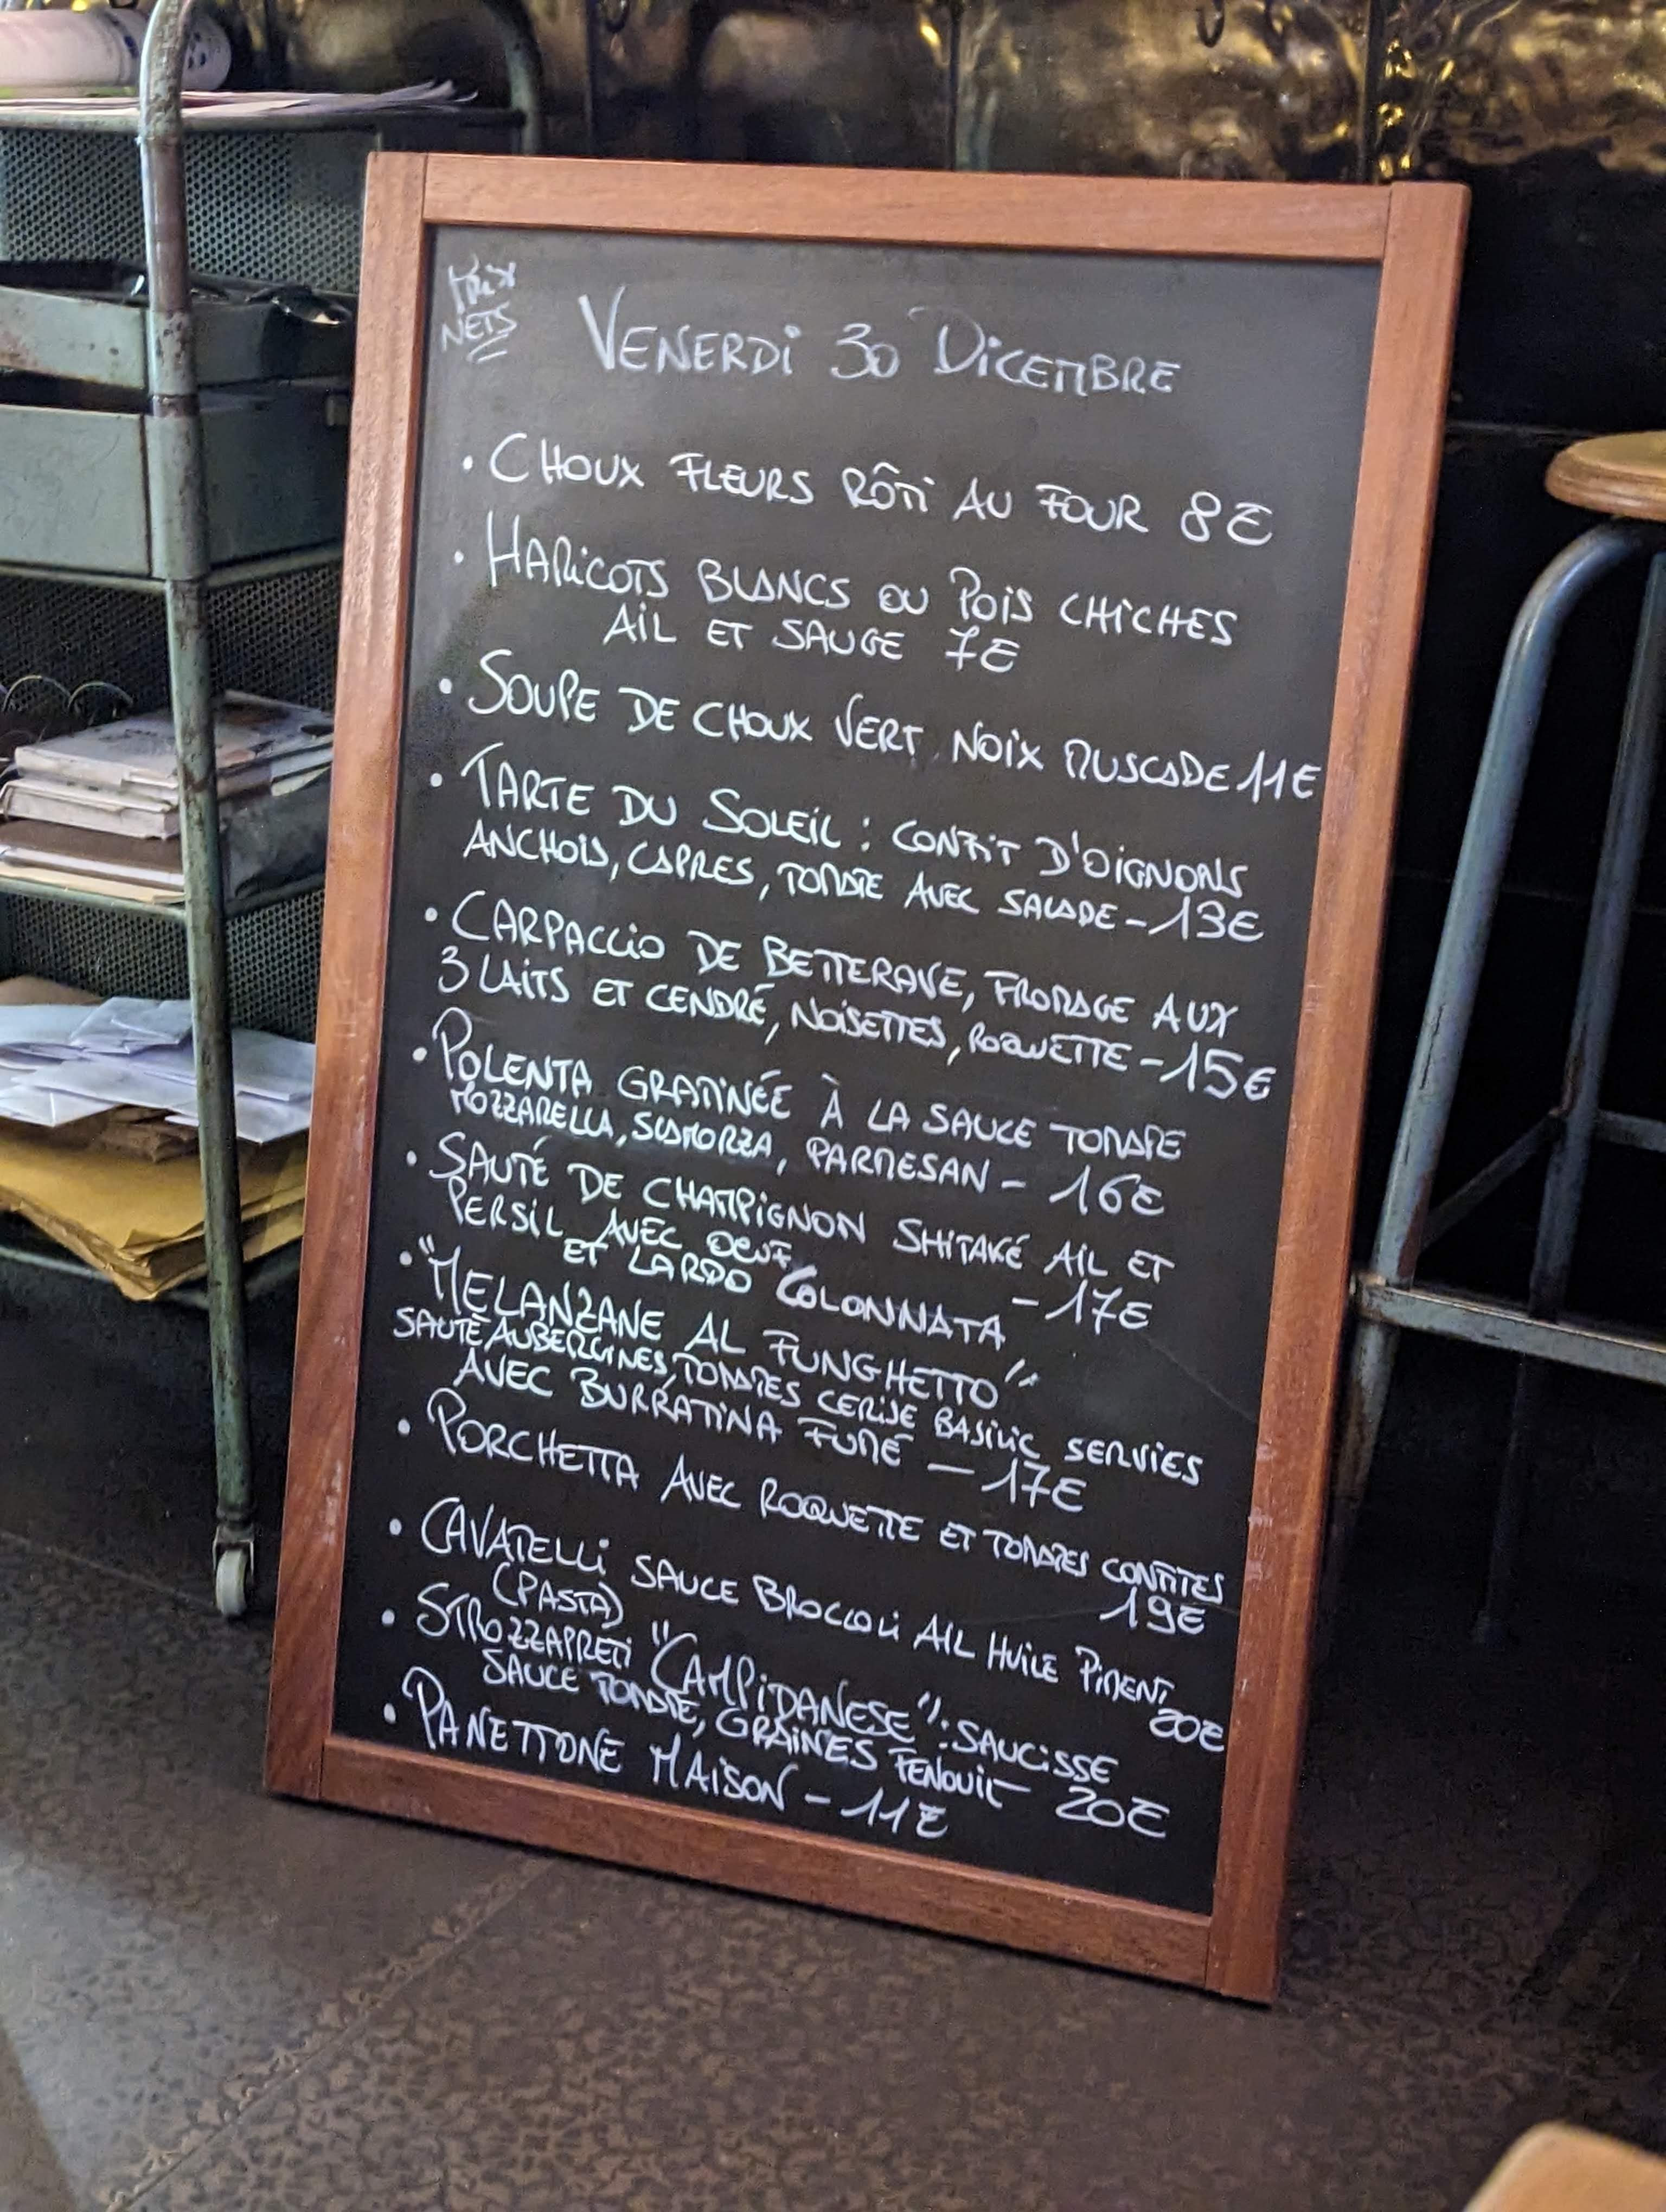 PRIX
NETS
VENERDI 30 DICEMBRE
• CHOUX FLEURS RÔTI AU FOUR 8€
• HARICOTS BLANCS OU POIS CHICHES
AIL ET SAUGE 7€
• SOUPE DE CHOUX VERT, NOIX MUSCADE 11€
• TARTE DU SOLEIL : CONFIT D'OIGNONS
ANCHOIS, CAPRES, TOMATE AVEC SALADE - 13€
• CARPACCIO DE BETTERAVE, FROMAGE AUX
3 LAITS ET CENDRÉ, NOISETTES, ROQUETTE - 15€
• POLENTA GRATINÉE À LA SAUCE TOMATE
MOZZARELLA, SCAMORZA, PARMESAN - 16€
• SAUTÉ DE CHAMPIGNON SHITAKÉ AIL ET
PERSIL AVEC OEUF
ET LARDO COLONNATA - 17€
• "MELANZANE AL FUNGHETTO"
SAUTÉ AUBERGINES, TOMATES CERISE BASILIC SERVIES
AVEC BURRATINA FUMÉ - 17€
• PORCHETTA AVEC ROQUETTE ET TOMATES CONFITES
19€
• CAVATELLI SAUCE BROCCOLI AIL HUILE PIMENT
(PASTA) 20€
• STROZZAPRETI "CAMPIDANESE": SAUCISSE
SAUCE TOMATE, GRAINES FENOUIL - 20€
• PANETTONE MAISON - 11€